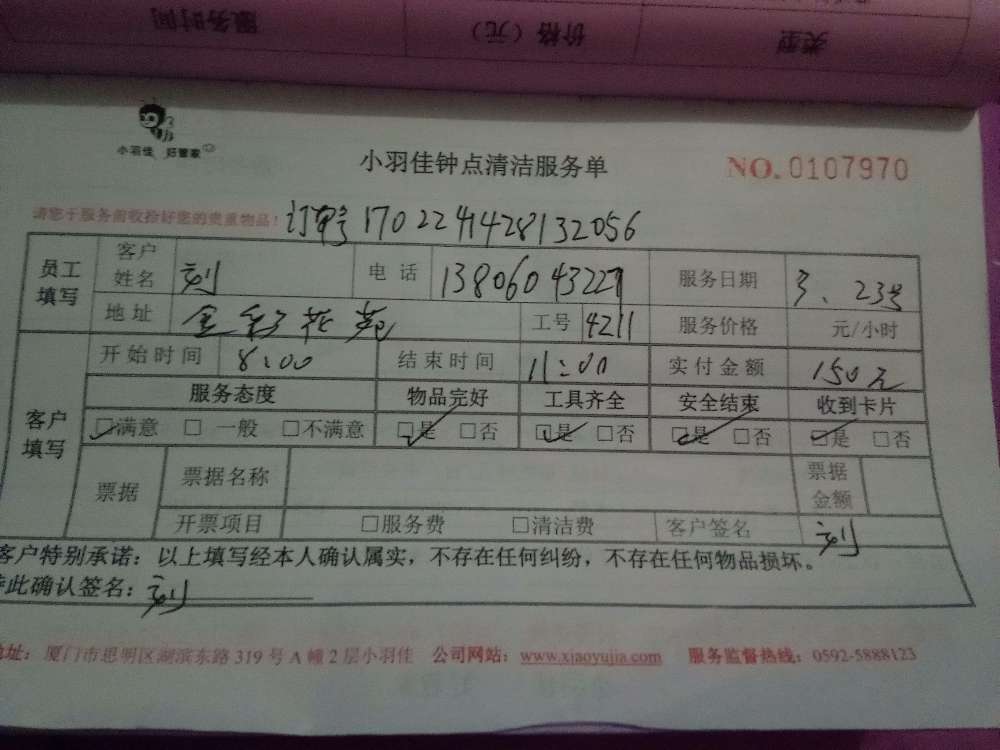 服务时间 价格（元） 类型
小羽佳 好管家
小羽佳钟点清洁服务单 NO.0107970
请您于服务前收拾好您的贵重物品！ 订单号 170224142813 2056
员工填写 客户姓名 刘 电话 13806043227 服务日期 3、23号
地址 金彩花苑 工号 4211 服务价格 元/小时
客户填写 开始时间 8:00 结束时间 11:00 实付金额 150元
服务态度 物品完好 工具齐全 安全结束 收到卡片
☑满意 □一般 □不满意 ☑是 □否 ☑是 □否 ☑是 □否 ☑是 □否
票据 票据名称 票据金额
开票项目 □服务费 □清洁费 客户签名 刘
客户特别承诺：以上填写经本人确认属实，不存在任何纠纷，不存在任何物品损坏。
特此确认签名：刘
地址：厦门市思明区湖滨东路 319 号 A 幢 2 层小羽佳 公司网站：www.xiaoyujia.com 服务监督热线：0592-5888123